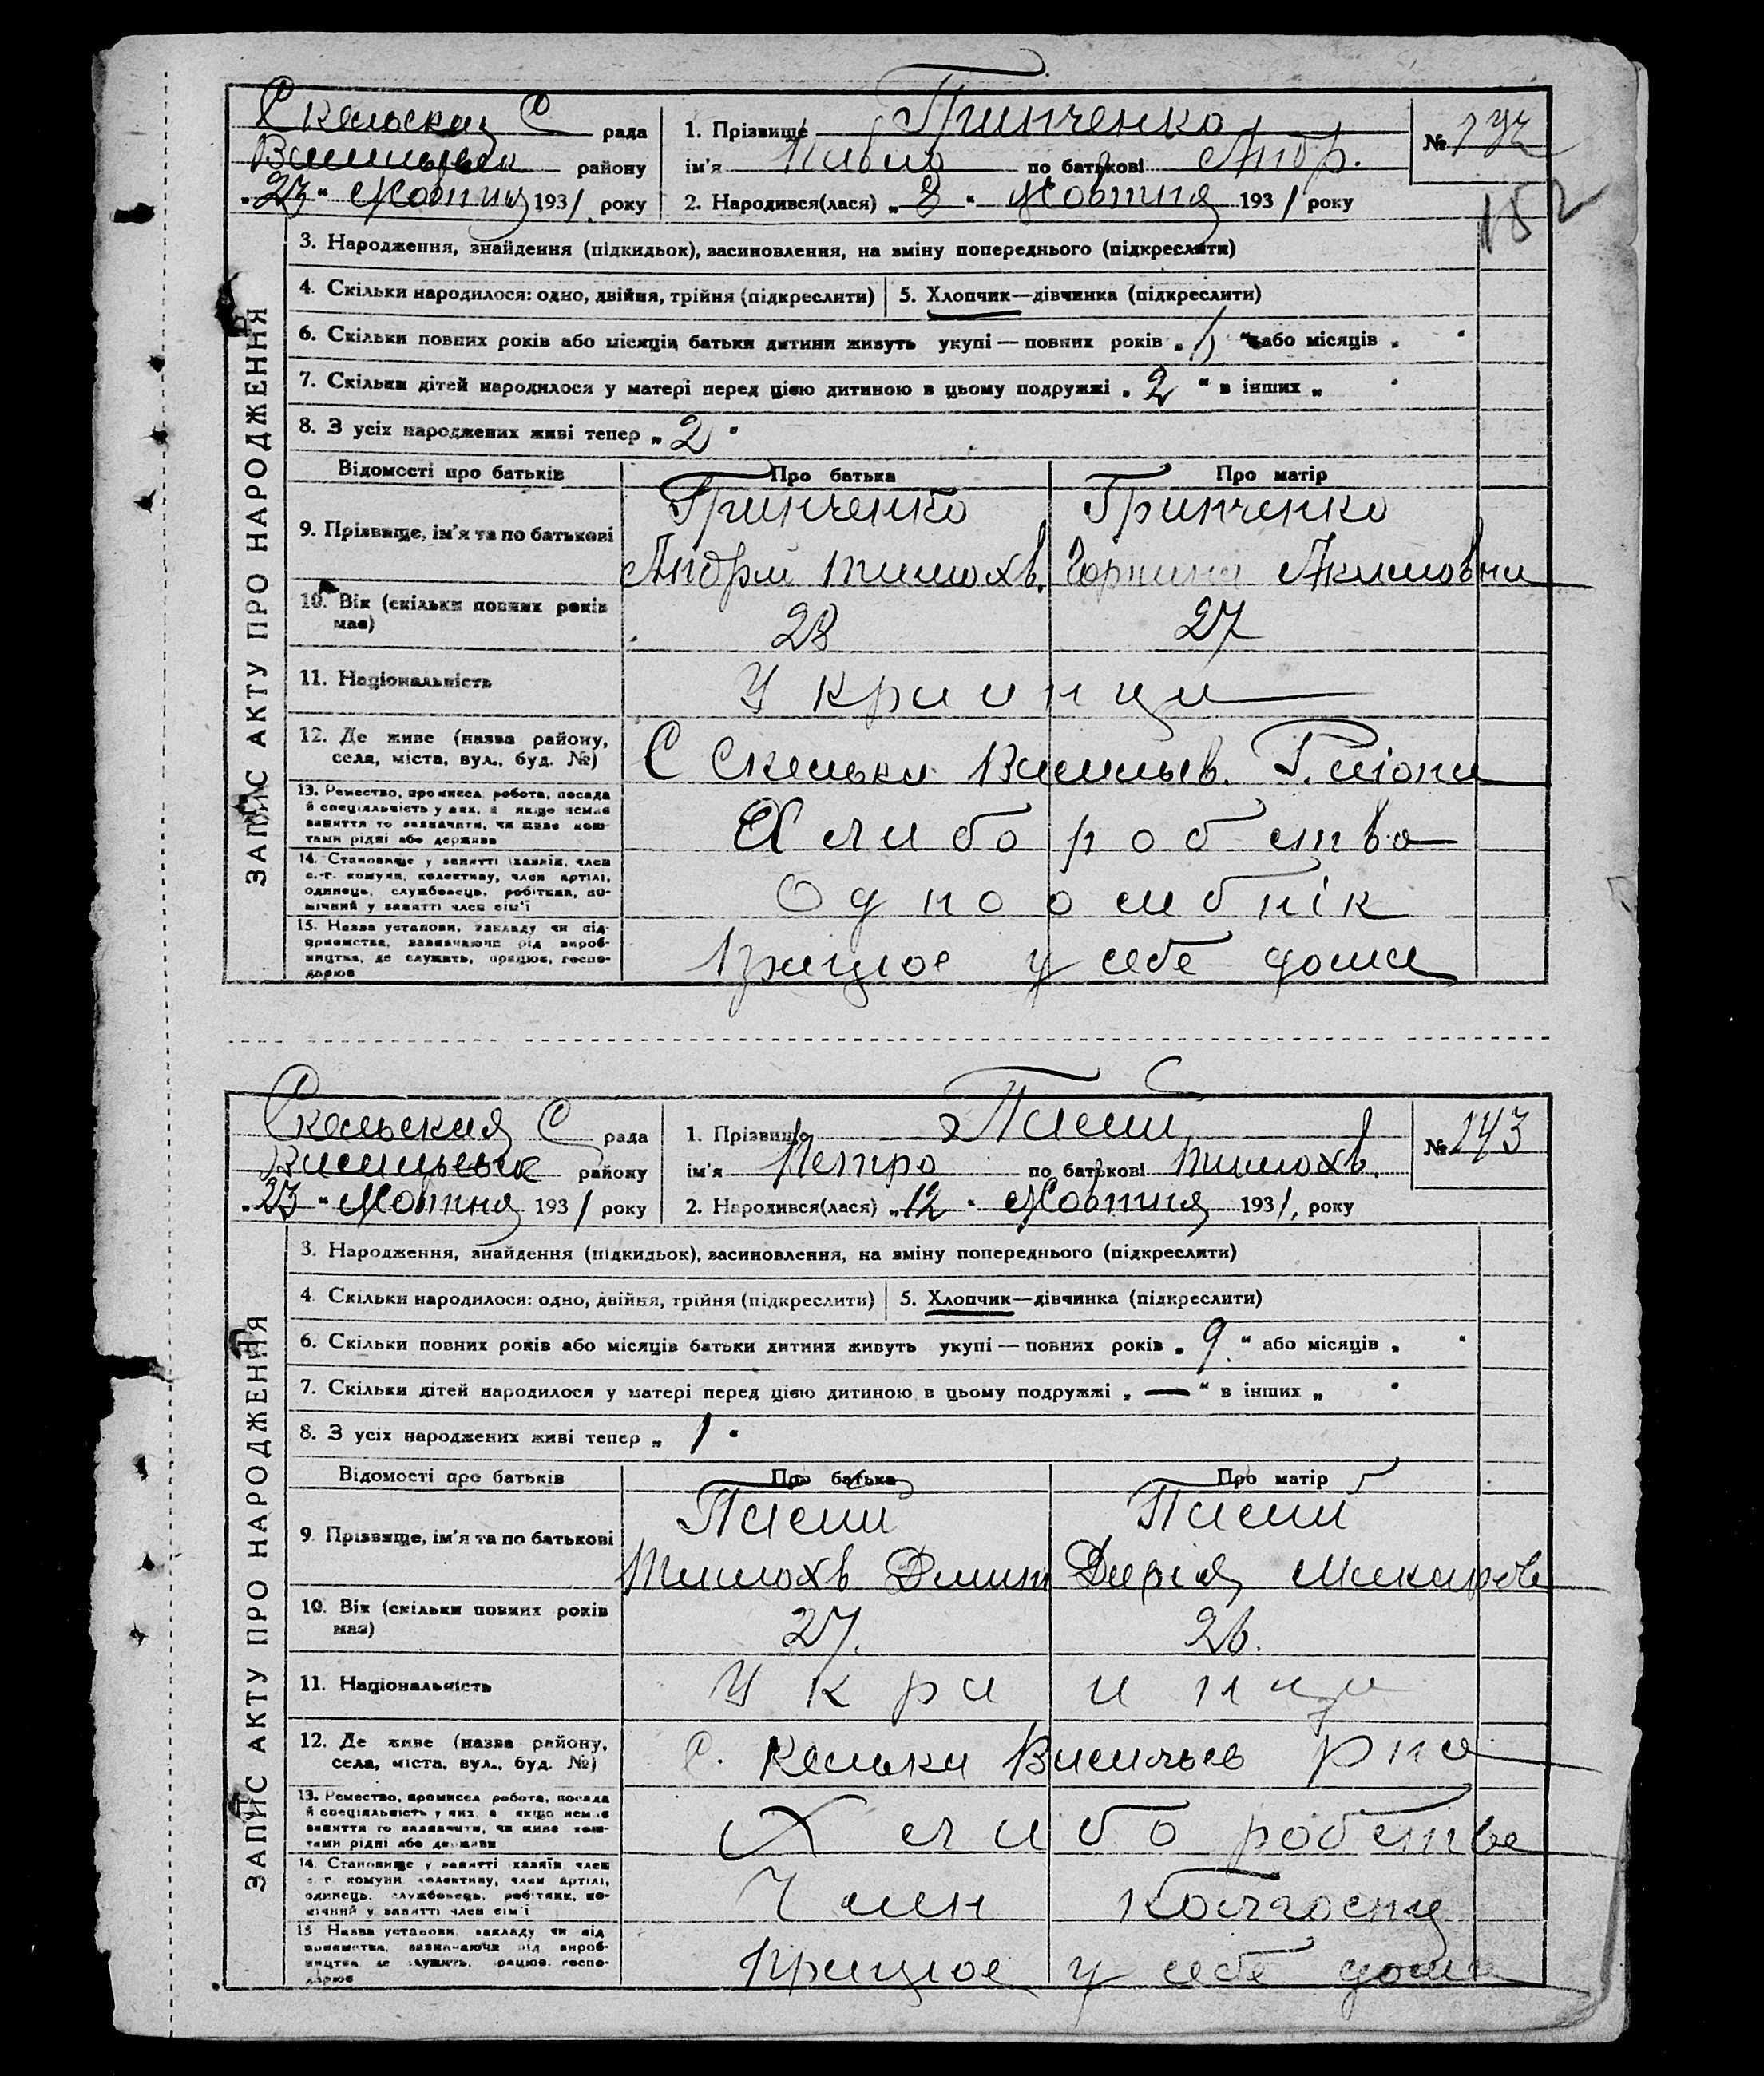 Скельская С рада
Васильевск району
„23“ Жовтня 1931. року
1. Прізвище Гринченко
ім'я Павло по батькові Андр.
2. Народився(лася) „8“ Жовтня 1931 року
№ 142
152
ЗАПИС АКТУ ПРО НАРОДЖЕННЯ
3. Народження, знайдення (підкидьок), засиновлення, на зміну попереднього (підкреслити)
4. Скільки народилося: одно, двійня, трійня (підкреслити) 5. Хлопчик—дівчинка (підкреслити)
6. Скільки повних років або місяців батьки дитини живуть укупі — повних років „ “ або місяців „ “
7. Скільки дітей народилося у матері перед цією дитиною в цьому подружжі „2“ в інших „ “
8. З усіх народжених живі тепер „2“
Відомості про батьків Про батька Про матір
9. Прізвище, ім'я та по батькові Гринченко Гринченко
Андрій Тимохв. Акимовна
10. Вік (скільки повних років має) 28 27
11. Національність Украинци
12. Де живе (назва району, села, міста, вул., буд. №) С Скельки Васильев.
13. Ремество, промисел, робота, посада й спеціяльність у них, а якщо немає заняття то зазначити, чи живе коштами рідні або держави Хлиборобство
14. Становище у занятті (хазяїн, член с.-г. комуни, колективу, член артілі, одинець, службовець, робітник, помічний у занятті член сім'ї Одноосибнік
15. Назва установи, закладу чи підприємства, зазначаючи рід виробництва, де служить, працює, господарює Працюе у себе дома
Скельская С рада
Васильевск району
„23“ Жовтня 1931 року
1. Прізвище Пасий
ім'я Петро по батькові Тимохв.
2. Народився(лася) „12“ Жовтня 1931, року
№ 143
ЗАПИС АКТУ ПРО НАРОДЖЕННЯ
3. Народження, знайдення (підкидьок), засиновлення, на зміну попереднього (підкреслити)
4. Скільки народилося: одно, двійня, трійня (підкреслити) 5. Хлопчик—дівчинка (підкреслити)
6. Скільки повних років або місяців батьки дитини живуть укупі — повних років „9.“ або місяців „ “
7. Скільки дітей народилося у матері перед цією дитиною в цьому подружжі „—“ в інших „ “
8. З усіх народжених живі тепер „1“
Відомості про батьків Про батька Про матір
9. Прізвище, ім'я та по батькові Пасий Пасий
Тимохв Дмит Дарія Макаров
10. Вік (скільки повних років має) 27. 26.
11. Національність Украинци
12. Де живе (назва району, села, міста, вул., буд. №) С. Кельки Васильев рна
13. Ремество, промисел, робота, посада й спеціяльність у них, а якщо немає заняття то зазначити, чи живе коштами рідні або держави Хлиборобство
14. Становище у занятті (хазяїн, член с.-г. комуни, колективу, член артілі, одинець, службовець, робітник, помічний у занятті член сім'ї Член Колгоспу
15. Назва установи, закладу чи підприємства, зазначаючи рід виробництва, де служить, працює, господарює Працюе у себе дома